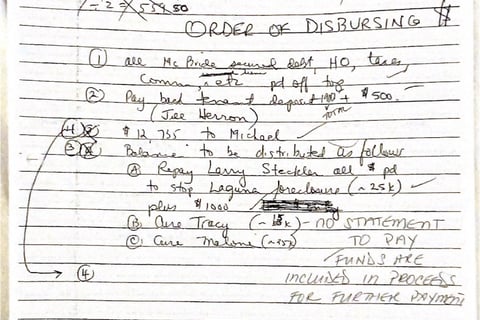 ÷ 2 = 559.50
ORDER OF DISBURSING $
① all McBride secured debt, HO, taxes,
Comm, etc pd off top
② Pay bad tenant deposit + $500.
(Jill Herron)
④ $12,755 to Michael
③ Balance to be distributed as follows
Ⓐ Repay Larry Steckler all $ pd
to stop Laguna foreclosure (~25k)
plus $1000
Ⓑ Cure Tracy (~ 15k) - NO STATEMENT
TO PAY
Ⓒ Cure Malone
FUNDS ARE
④ INCLUDED IN PROCEEDS
FOR FURTHER PAYMENT